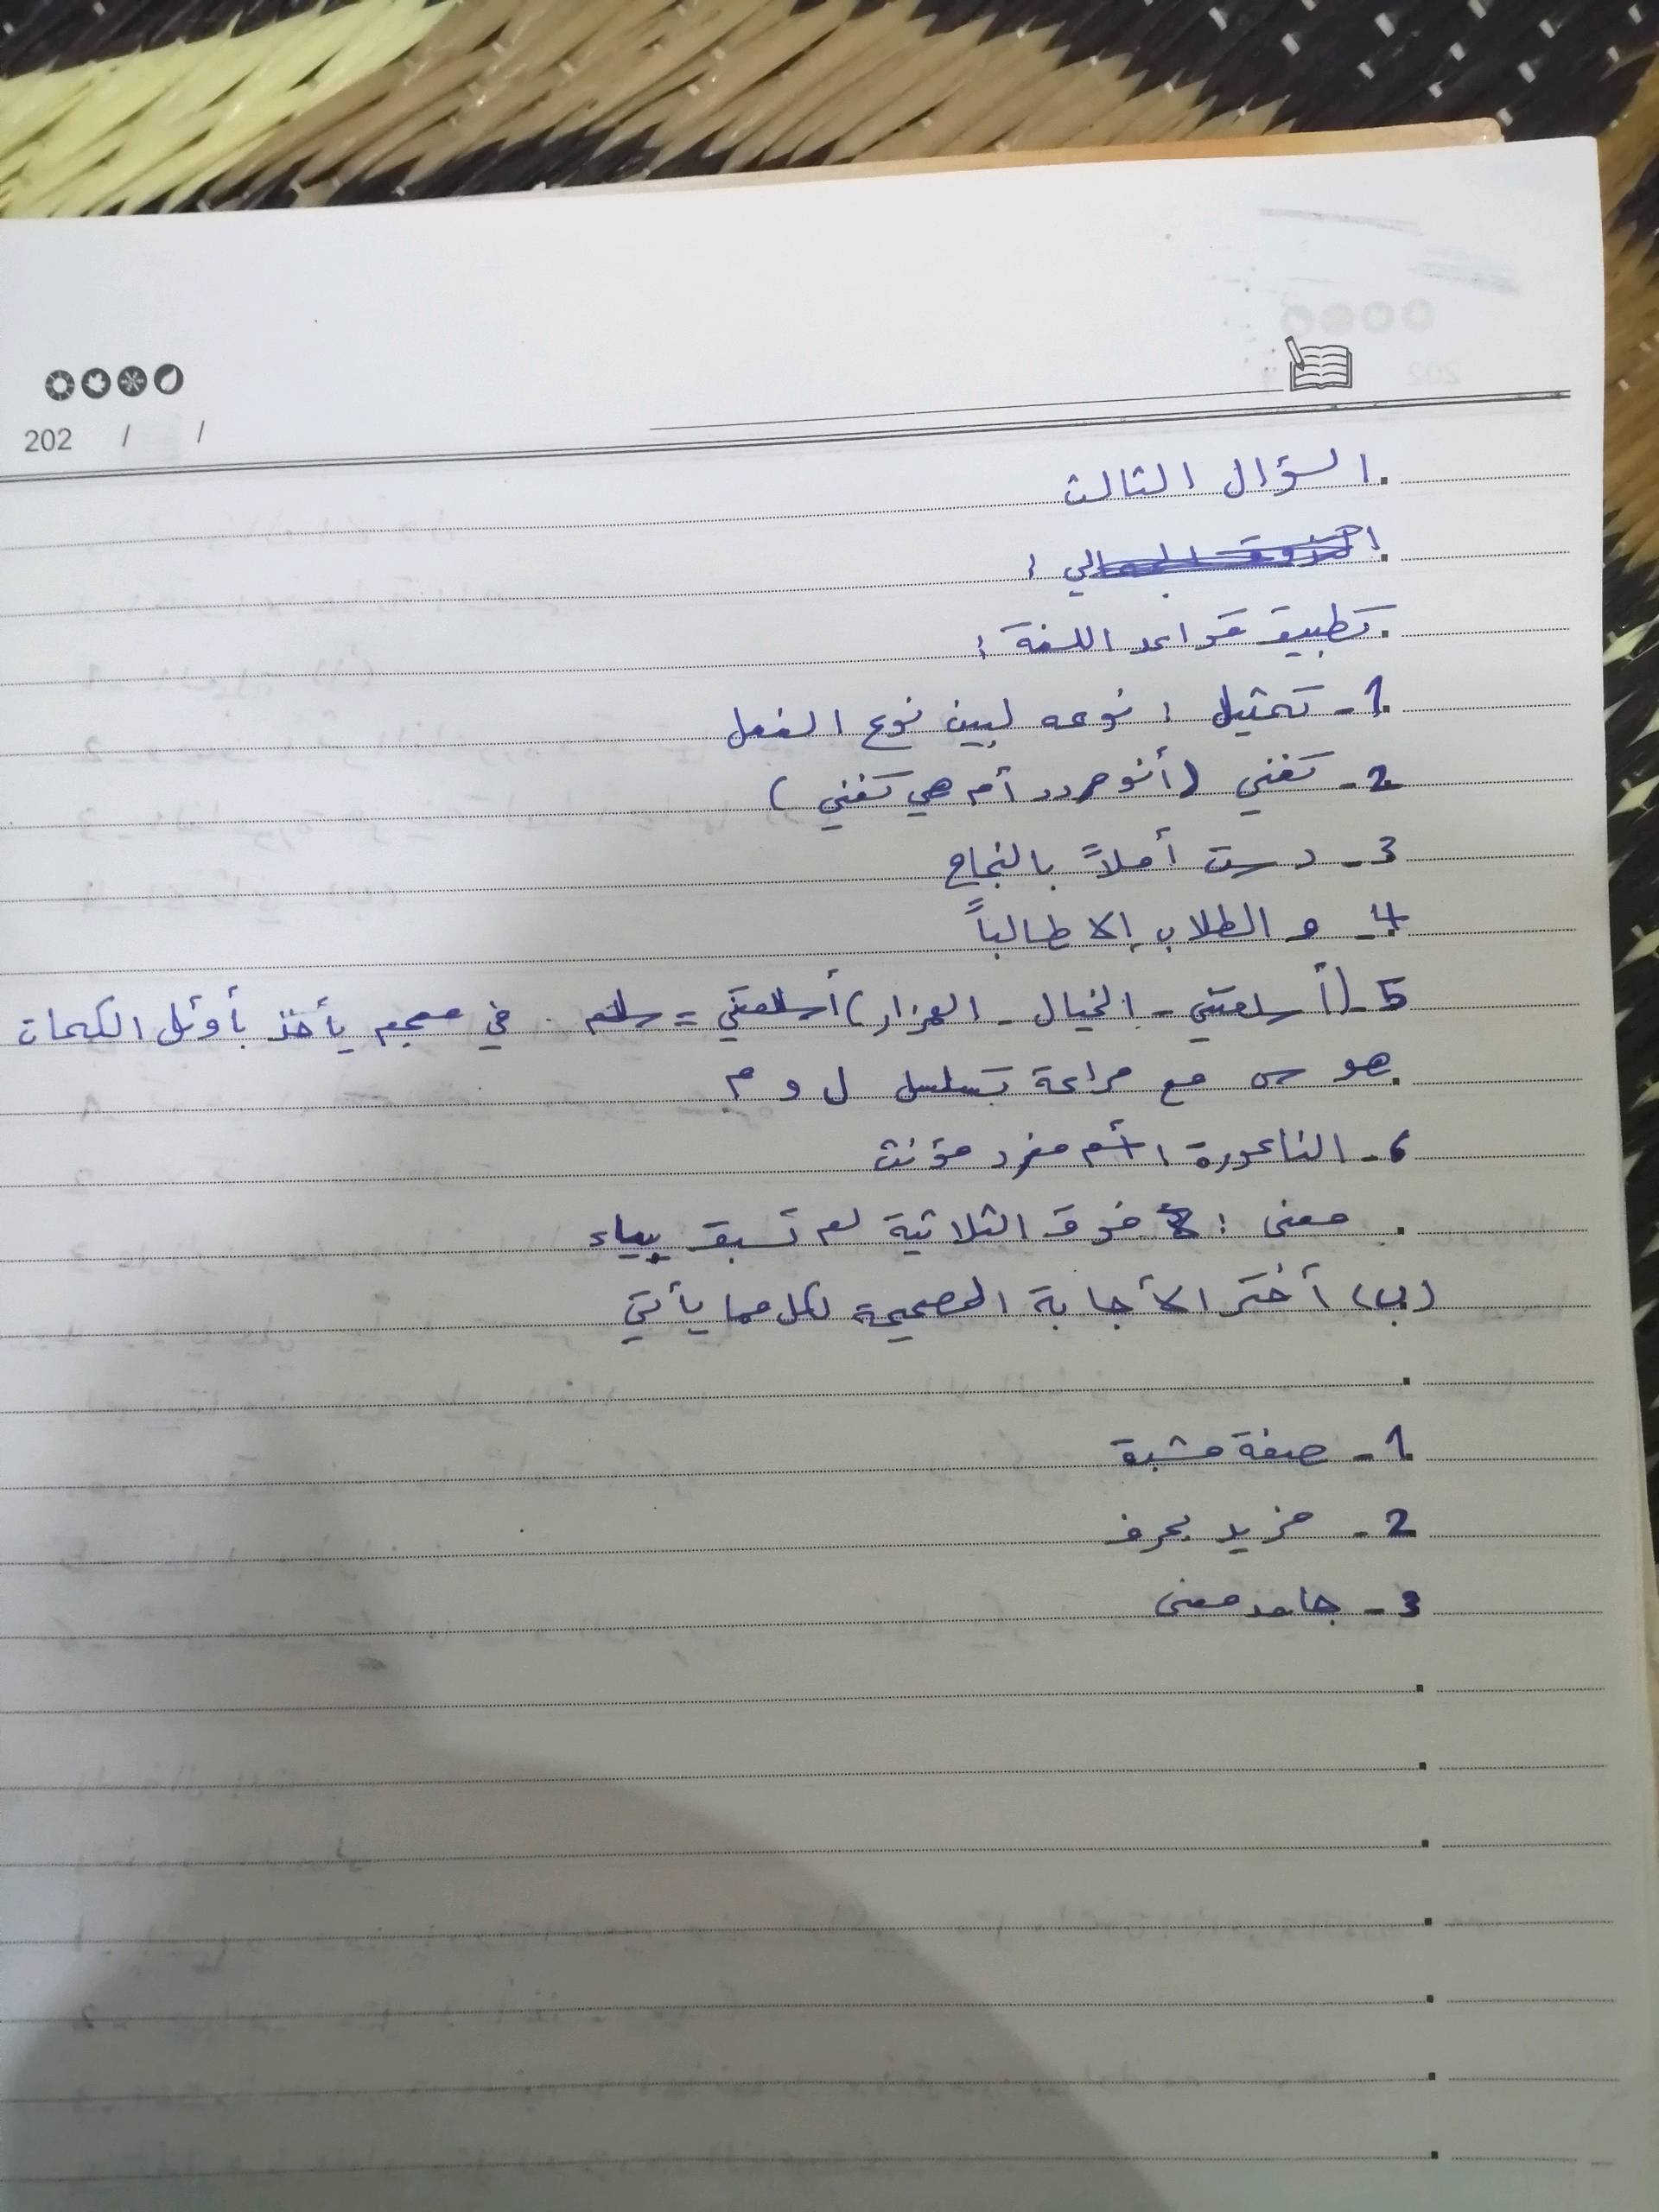 202 / /
السؤال الثالث
تطبيق قواعد اللغة :
1- تمثيل : نوعه لبين نوع الفعل
2- تغني (أنوح أم هي تغني)
3- درست أملاً بالنجاح
4- و الطلاب إلا طالباً
5- (أسلمتني - الخيال - الهزار) أسلمتني = سلم . في معجم يأخذ بأوئل الكلمات
هو س مع مراعة تسلسل ل و م
6- الناعورة : أسم مفرد مؤنث
معنى : فوق الثلاثية لم تسبق بياء
(ب) أختر الأجابة الصحيحة لكل مما يأتي
1- صفة مشبة
2- مزيد بحرف
3- جامد معنى